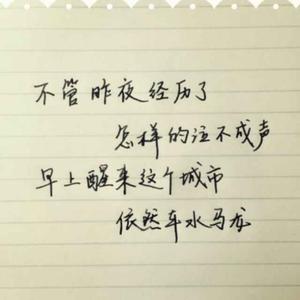 不管昨夜经历了
怎样的泣不成声
早上醒来这个城市
依然车水马龙